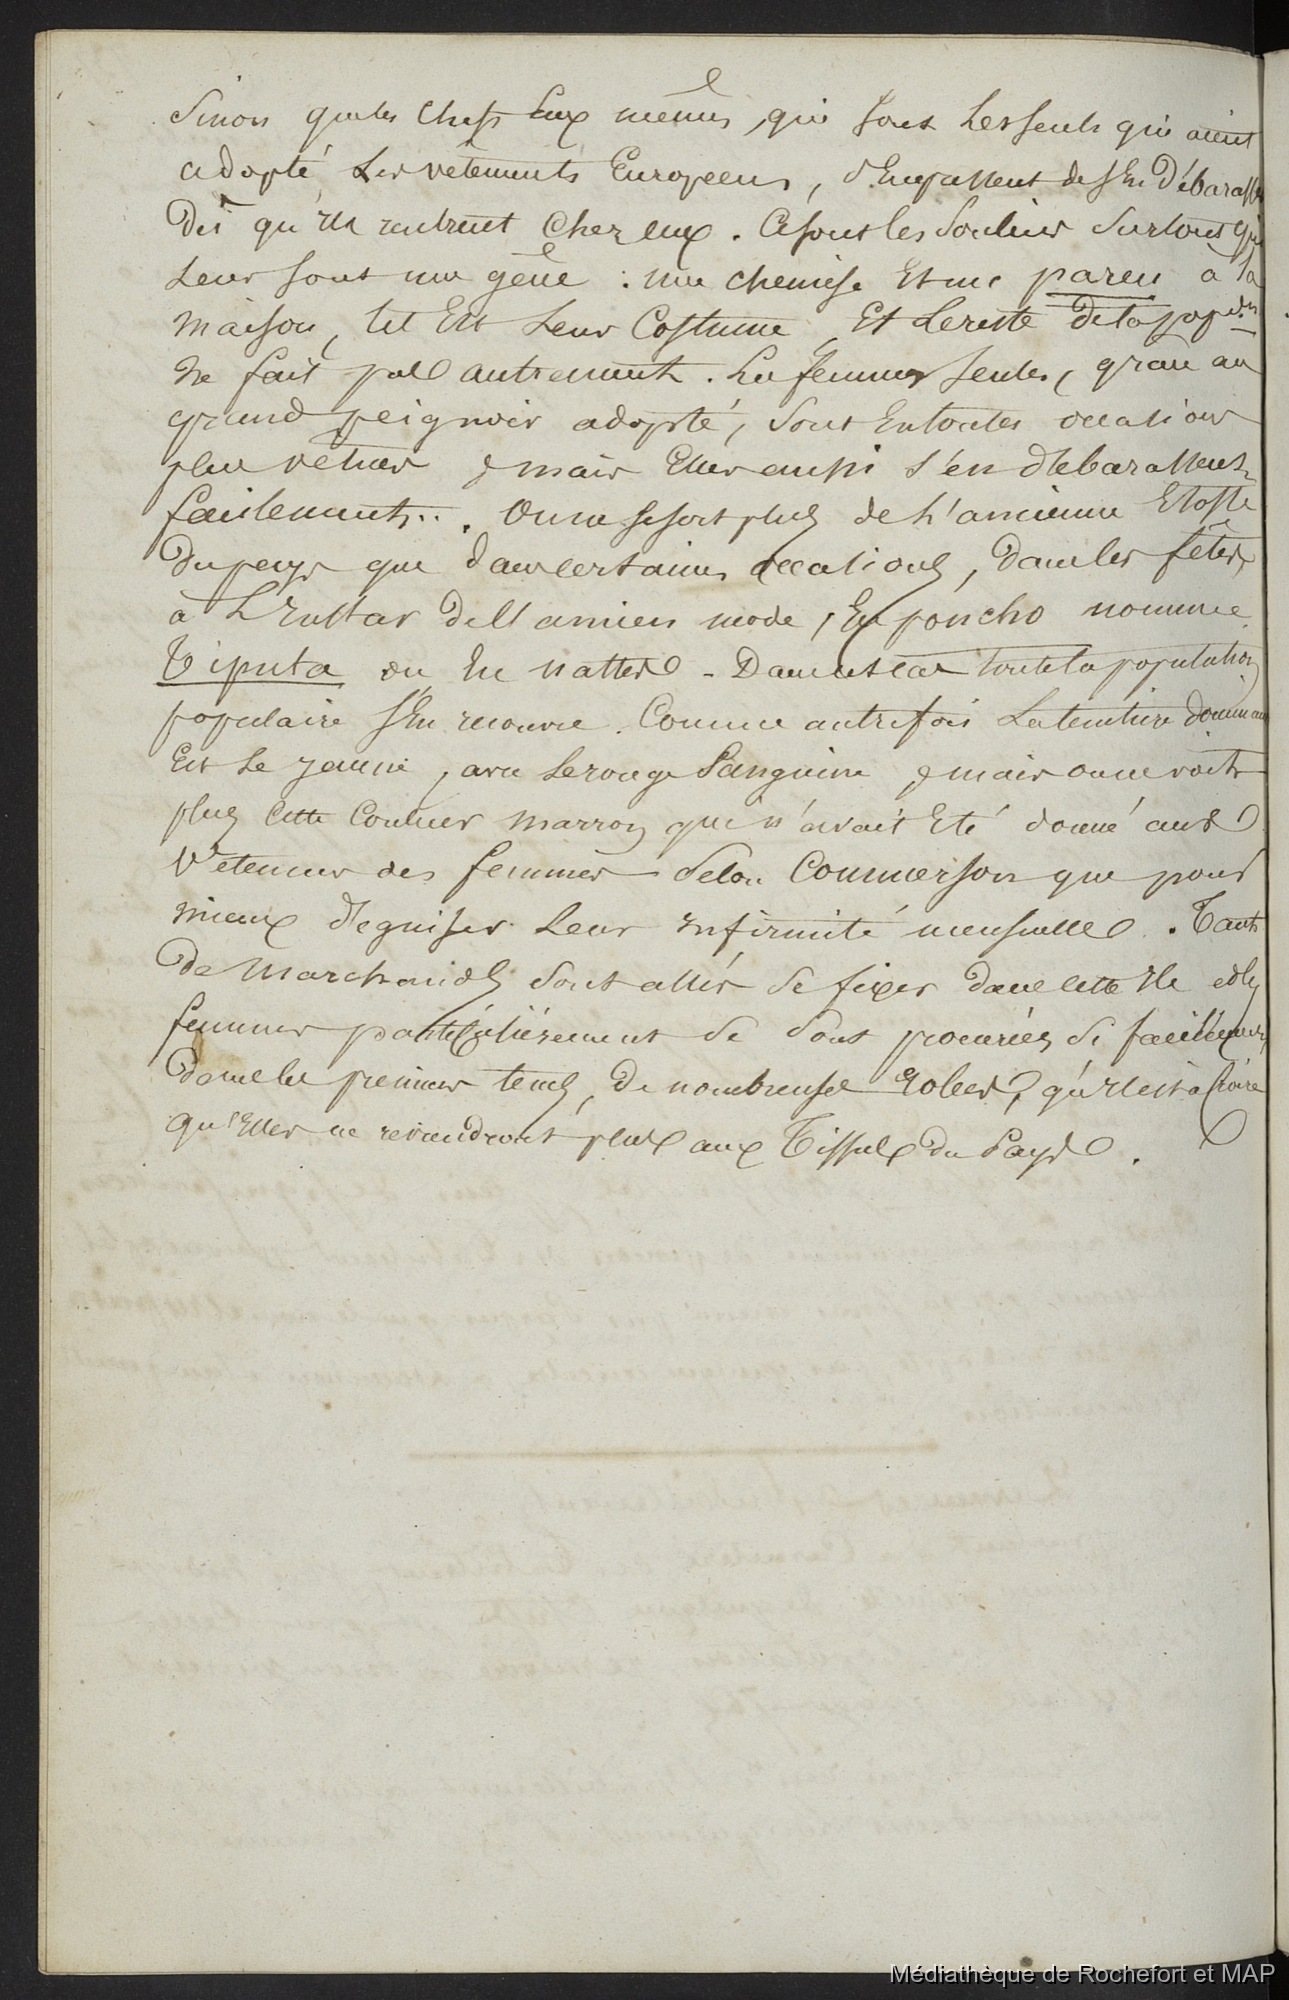 Sinon que les chefs Eux mêmes, qui sont les seuls qui aient
adopté les vêtements Européens, s'empassent de s'En Débarasser
Dès qu'Ils rentrent chez eux. Ce sont les Souliers Surtout qui
leur sont une gêne : une chemise Et une pareu à la
maison, tel Est leur Costume, Et le reste de la popon
ne fait pas autrement. Les femmes seules, grâce au
grand peignoir adopté, sont En toutes occasions
plus vêtues, mais Elles aussi s'en debarassent
facilement... On ne se sert plus de l'ancienne Etoffe
du pays que dans certaines occasions, Dans les fêtes,
à L'Instar de l'ancien mode, En poncho nommée
Tiputa ou En nattes - Dans ce cas toute la population
populaire s'En recouvre. Comme autrefois la teinture dominan
Est le jaune, avec le rouge Sanguine, mais on ne voit
plus cette Couleur marron qui n'avait Eté donné aux
Vetemens des femmes selon Commerson que pour
mieux deguiser leur Infirmité mensuelle. Tant
De Marchands sont allés se fixer dans cette Ile et les
femmes particulièrement se sont procurées si facilement
dans les premiers temps, de nombreuses robes, qu'Il est à croire
qu'Elles ne reviendront plus aux Tissus du Pays.
Médiathèque de Rochefort et MAP